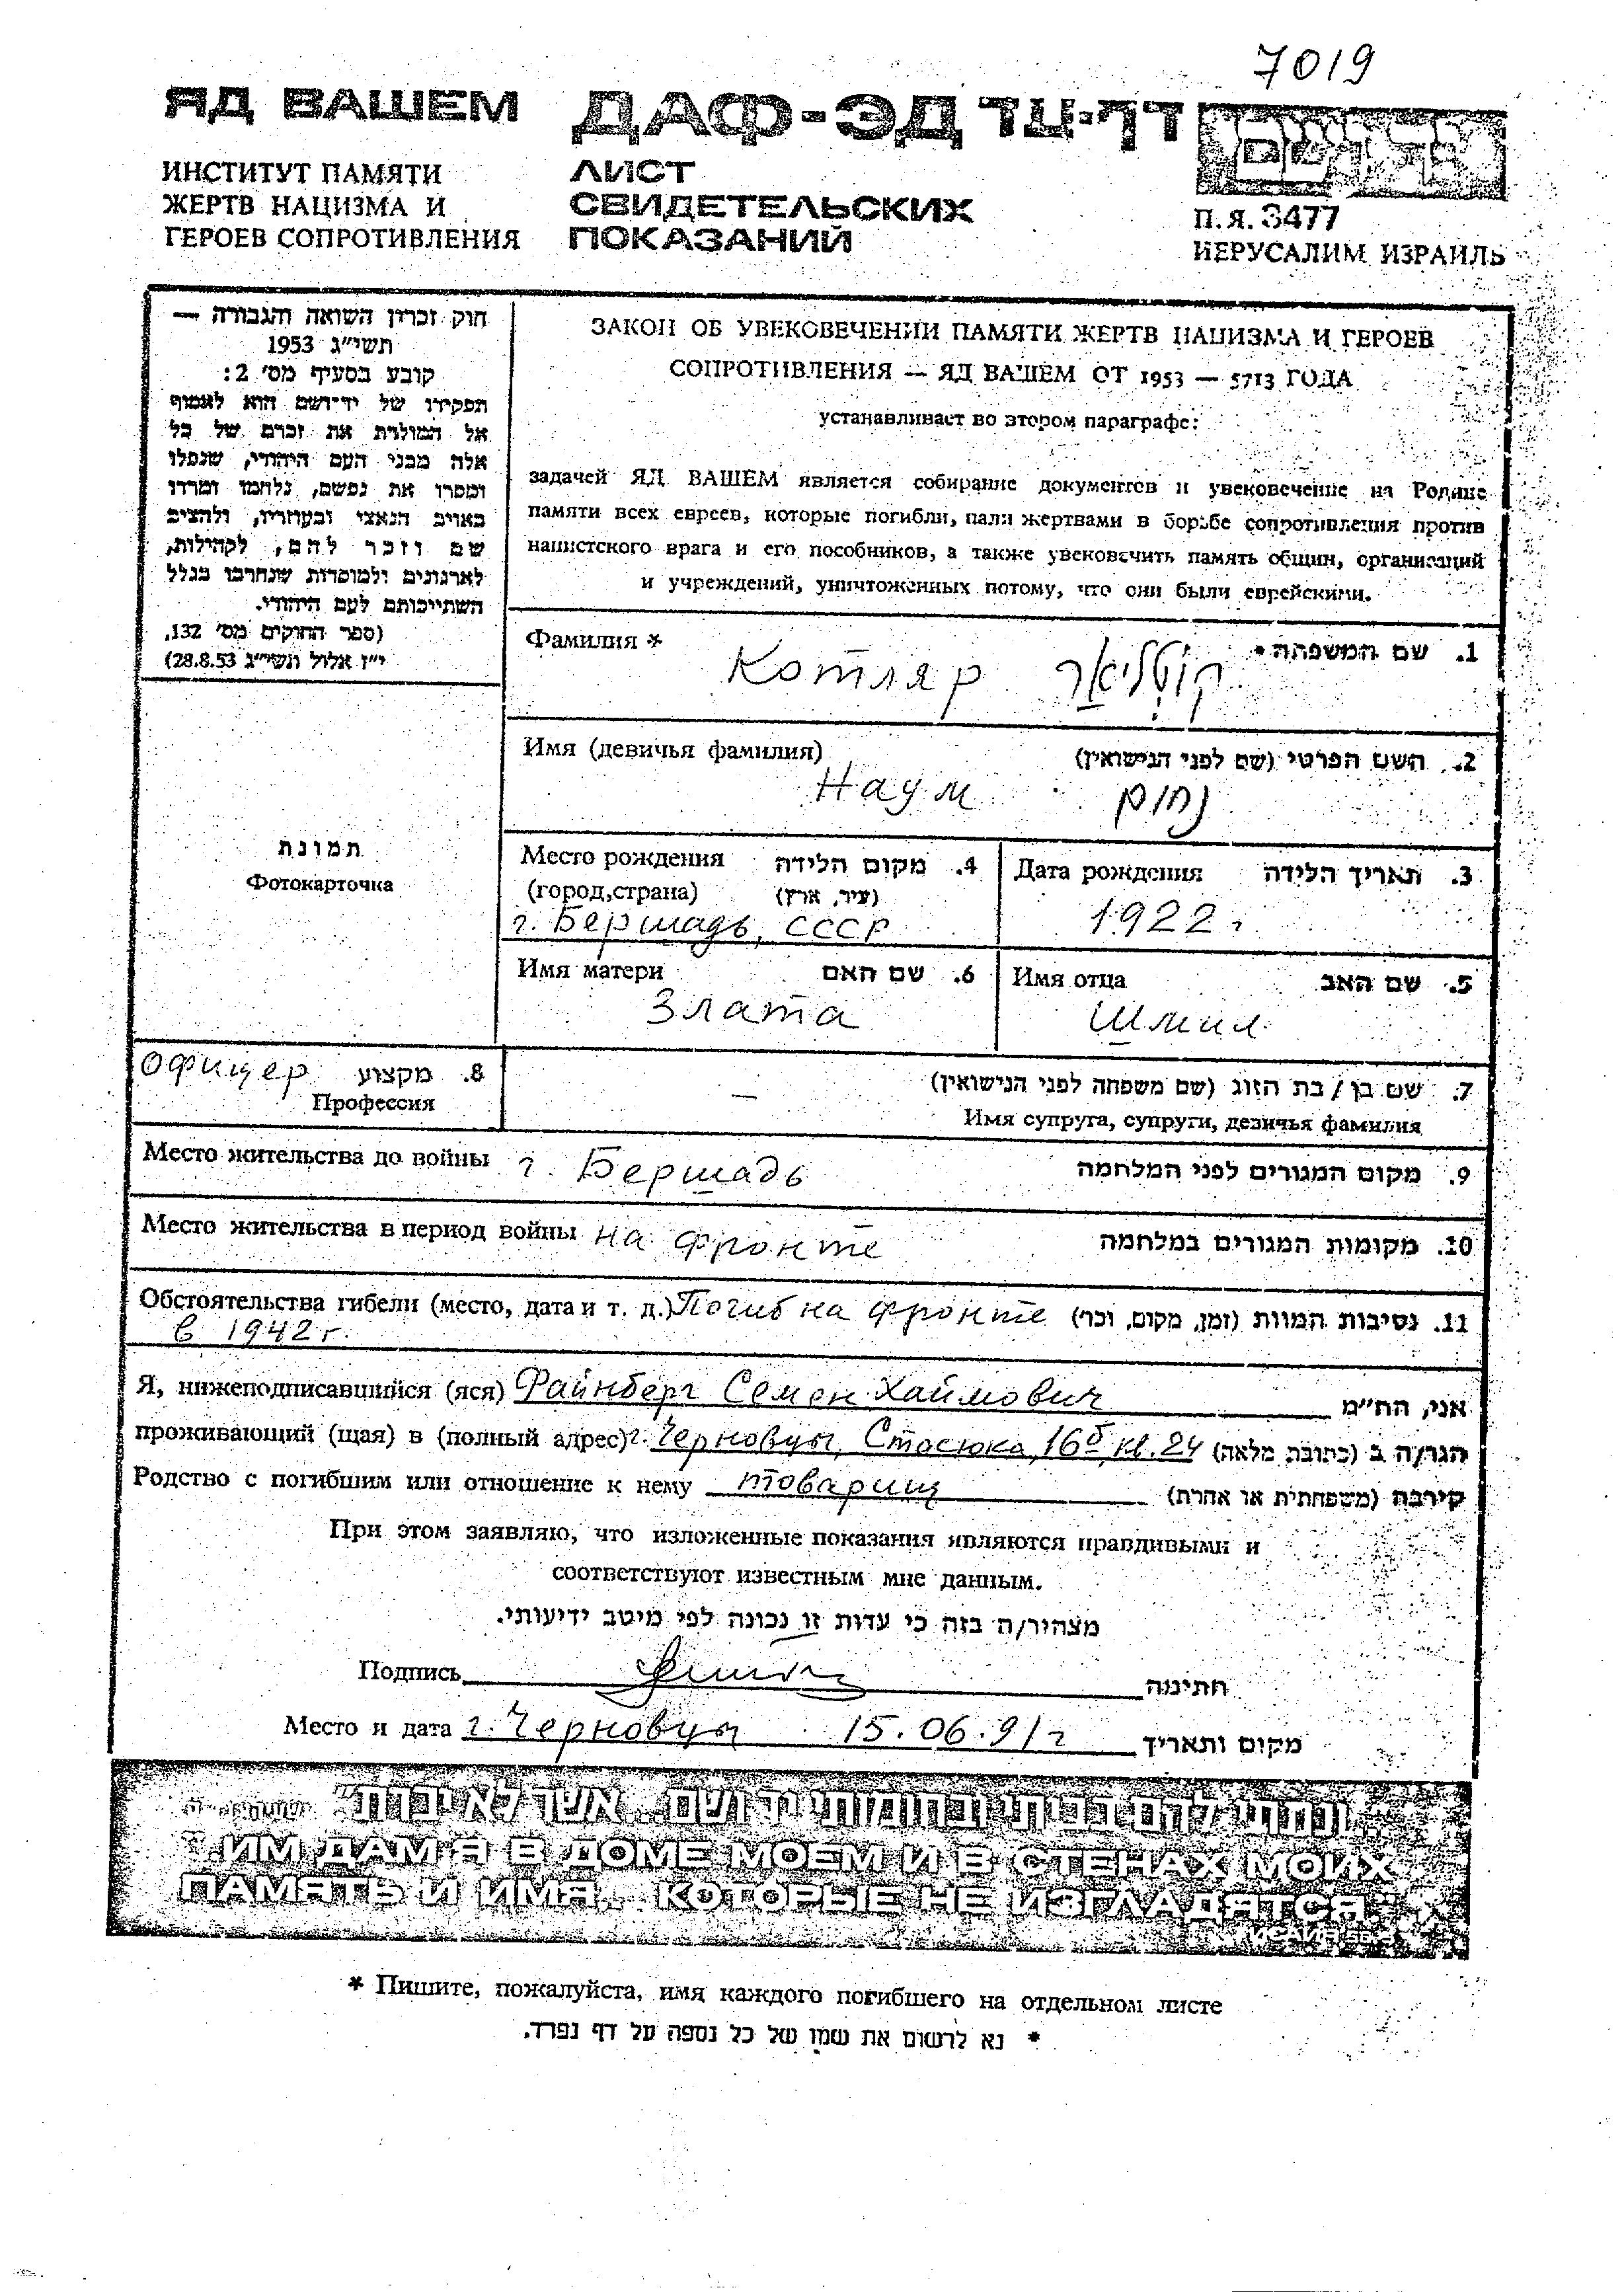 7019
ЯД ВАШЕМ ДАФ-ЭД דף-עד
ИНСТИТУТ ПАМЯТИ
ЖЕРТВ НАЦИЗМА И
ГЕРОЕВ СОПРОТИВЛЕНИЯ
ЛИСТ
СВИДЕТЕЛЬСКИХ
ПОКАЗАНИЙ
יד ושם
П.Я. 3477
ИЕРУСАЛИМ ИЗРАИЛЬ
חוק זכרון השואה והגבורה —
תשי"ג 1953
קובע בסעיף מס' 2:
תפקידו של יד-ושם הוא לאסוף
אל המולדת את זכרם של כל
אלה מבני העם היהודי, שנפלו
ומסרו את נפשם, נלחמו ומרדו
באויב הנאצי ובעוזריו, ולהציב
שם וזכר להם, לקהילות,
לארגונים ולמוסדות שנחרבו בגלל
השתייכותם לעם היהודי.
(ספר החוקים מס' 132,
י"ז אלול תשי"ג 28.8.53)
ЗАКОН ОБ УВЕКОВЕЧЕНИИ ПАМЯТИ ЖЕРТВ НАЦИЗМА И ГЕРОЕВ
СОПРОТИВЛЕНИЯ — ЯД ВАШЕМ ОТ 1953 — 5713 ГОДА
устанавливает во втором параграфе:
задачей ЯД ВАШЕМ является собирание документов и увековечение на Родине
памяти всех евреев, которые погибли, пали жертвами в борьбе сопротивления против
нацистского врага и его пособников, а также увековечить память общин, организаций
и учреждений, уничтоженных потому, что они были еврейскими.
Фамилия * 1. שם המשפחה *
Котляр קוטליאר
Имя (девичья фамилия) 2. השם הפרטי (שם לפני הנישואין)
Наум נחום
תמונת
Фотокарточка
Место рождения 4. מקום הלידה
(город,страна) (עיר, ארץ)
г. Бершадь, СССР
Дата рождения 3. תאריך הלידה
1922 г.
Имя матери 6. שם האם
Злата
Имя отца 5. שם האב
Шмил
Офицер 8. מקצוע
Профессия
— 7. שם בן / בת הזוג (שם משפחה לפני הנישואין)
Имя супруга, супруги, девичья фамилия
Место жительства до войны г. Бершадь 9. מקום המגורים לפני המלחמה
Место жительства в период войны на фронте 10. מקומות המגורים במלחמה
Обстоятельства гибели (место, дата и т. д.) Погиб на фронте 11. נסיבות המוות (זמן, מקום, וכו')
в 1942 г.
Я, нижеподписавшийся (яся) Файнберг Семен Хаймович אני, הח"מ
проживающий (щая) в (полный адрес) г. Черновцы, Стасюка, 16б кв. 24 הגר/ה ב (כתובת מלאה)
Родство с погибшим или отношение к нему товарищ קירבה (משפחתית או אחרת)
При этом заявляю, что изложенные показания являются правдивыми и
соответствуют известным мне данным.
מצהיר/ה בזה כי עדות זו נכונה לפי מיטב ידיעותי.
Подпись חתימה
Место и дата г. Черновцы 15.06.91 г מקום ותאריך
"...ונתתי להם בביתי ובחומותי יד ושם... אשר לא יכרת"
"...ИМ ДАМ Я В ДОМЕ МОЕМ И В СТЕНАХ МОИХ
ПАМЯТЬ И ИМЯ... КОТОРЫЕ НЕ ИЗГЛАДЯТСЯ."
* Пишите, пожалуйста, имя каждого погибшего на отдельном листе
* נא לרשום את שמו של כל נספה על דף נפרד.